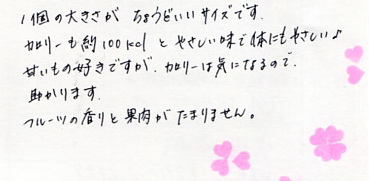 1個の大きさが ちょうどいいサイズです.
カロリーも約100kcl と やさしい味で体にもやさしい♪
甘いもの好きですが. カロリーは気になるので.
助かります.
フルーツの香りと果肉が たまりません。